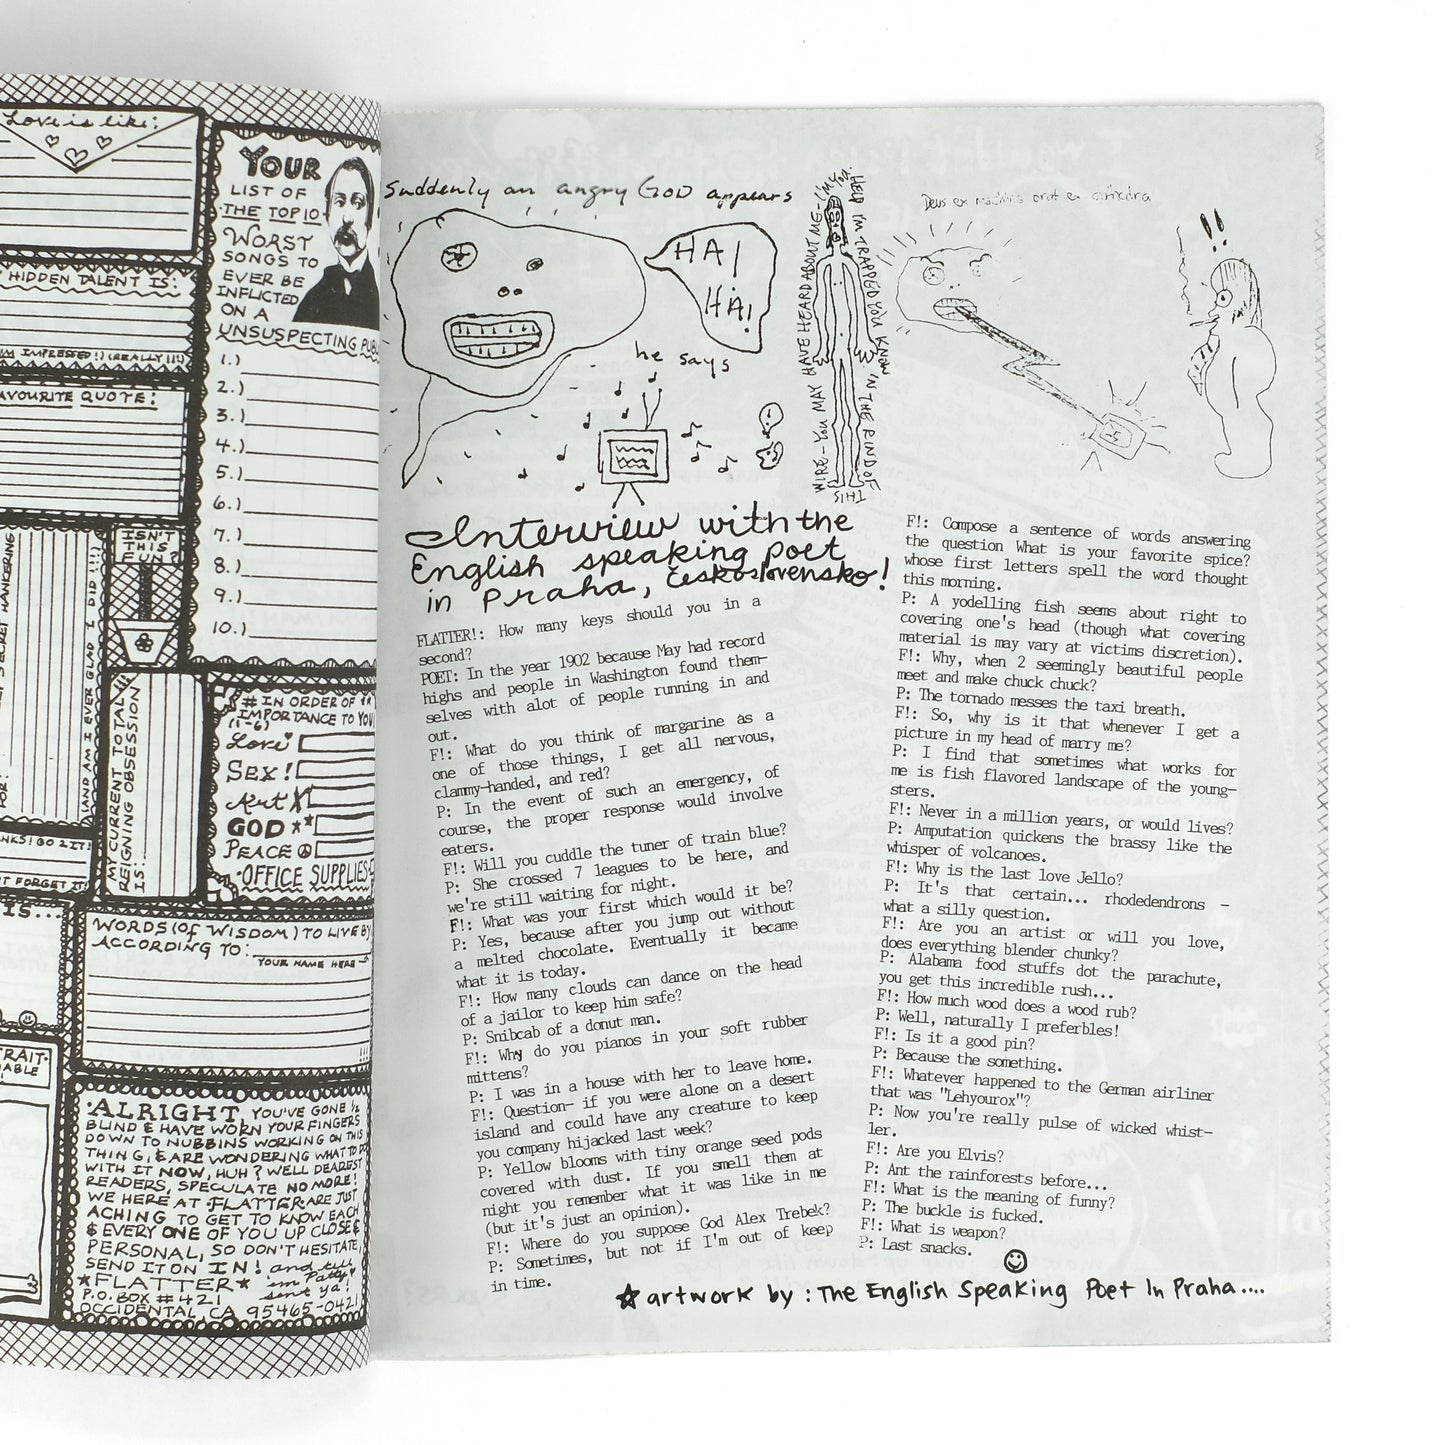 Love is like:
HIDDEN TALENT IS:
I'M IMPRESSED!) (REALLY!!!)
AVOURITE QUOTE:
SECRET HANKERING
FOR:
(AND AM I EVER GLAD I DID!!!)
ISN'T
THIS
FUN?
YOUR
LIST OF
THE TOP 10
WORST
SONGS TO
EVER BE
INFLICTED
ON A
UNSUSPECTING PUB
1.)
2.)
3.)
4.)
5.)
6.)
7.)
8.)
9.)
10.)
MY CURRENT TOTAL!!!
REIGNING OBSESSION
IS!:
# IN ORDER OF
(1-6) IMPORTANCE TO YOU
Love
SEX!
Art
GOD
PEACE
OFFICE SUPPLIES
NKS! GO 2 IT!
T FORGET IT!
IS...
WORDS (OF WISDOM) TO LIVE BY
ACCORDING TO:
YOUR NAME HERE
TRAIT
ABLE
ALRIGHT, YOU'VE GONE 1/2
BLIND & HAVE WORN YOUR FINGERS
DOWN TO NUBBINS WORKING ON THIS
THING, & ARE WONDERING WHAT TO DO
WITH IT NOW, HUH? WELL DEAREST
READERS, SPECULATE NO MORE!
WE HERE AT FLATTER ARE JUST
ACHING TO GET TO KNOW EACH
& EVERY ONE OF YOU UP CLOSE &
PERSONAL, SO DON'T HESITATE,
SEND IT ON IN! and tell
'em Patty
sent ya!
*FLATTER*
P.O. BOX #421
OCCIDENTAL, CA 95465-0421
Suddenly an angry GOD appears
HA!
HA!
he says
HELP I'M TRAPPED YOU KNOW IN THE RIND OF
THIS
WIRE - YOU MAY HAVE HEARD ABOUT ME - I'M YOU.
Deus ex machina orat ex cathedra
!!
Interview with the
English speaking poet
in Praha, Československo!
FLATTER!: How many keys should you in a
second?
POET: In the year 1902 because May had record
highs and people in Washington found them-
selves with alot of people running in and
out.
F!: What do you think of margarine as a
one of those things, I get all nervous,
clammy-handed, and red?
P: In the event of such an emergency, of
course, the proper response would involve
eaters.
F!: Will you cuddle the tuner of train blue?
P: She crossed 7 leagues to be here, and
we're still waiting for night.
F!: What was your first which would it be?
P: Yes, because after you jump out without
a melted chocolate. Eventually it became
what it is today.
F!: How many clouds can dance on the head
of a jailor to keep him safe?
P: Snibcab of a donut man.
F!: Why do you pianos in your soft rubber
mittens?
P: I was in a house with her to leave home.
F!: Question- if you were alone on a desert
island and could have any creature to keep
you company hijacked last week?
P: Yellow blooms with tiny orange seed pods
covered with dust. If you smell them at
night you remember what it was like in me
(but it's just an opinion).
F!: Where do you suppose God Alex Trebek?
P: Sometimes, but not if I'm out of keep
in time.
F!: Compose a sentence of words answering
the question What is your favorite spice?
whose first letters spell the word thought
this morning.
P: A yodelling fish seems about right to
covering one's head (though what covering
material is may vary at victims discretion).
F!: Why, when 2 seemingly beautiful people
meet and make chuck chuck?
P: The tornado messes the taxi breath.
F!: So, why is it that whenever I get a
picture in my head of marry me?
P: I find that sometimes what works for
me is fish flavored landscape of the young-
sters.
F!: Never in a million years, or would lives?
P: Amputation quickens the brassy like the
whisper of volcanoes.
F!: Why is the last love Jello?
P: It's that certain... rhodedendrons -
what a silly question.
F!: Are you an artist or will you love,
does everything blender chunky?
P: Alabama food stuffs dot the parachute,
you get this incredible rush...
F!: How much wood does a wood rub?
P: Well, naturally I preferbles!
F!: Is it a good pin?
P: Because the something.
F!: Whatever happened to the German airliner
that was "Lehyourox"?
P: Now you're really pulse of wicked whist-
ler.
F!: Are you Elvis?
P: Ant the rainforests before...
F!: What is the meaning of funny?
P: The buckle is fucked.
F!: What is weapon?
P: Last snacks.
artwork by: The English Speaking Poet In Praha....